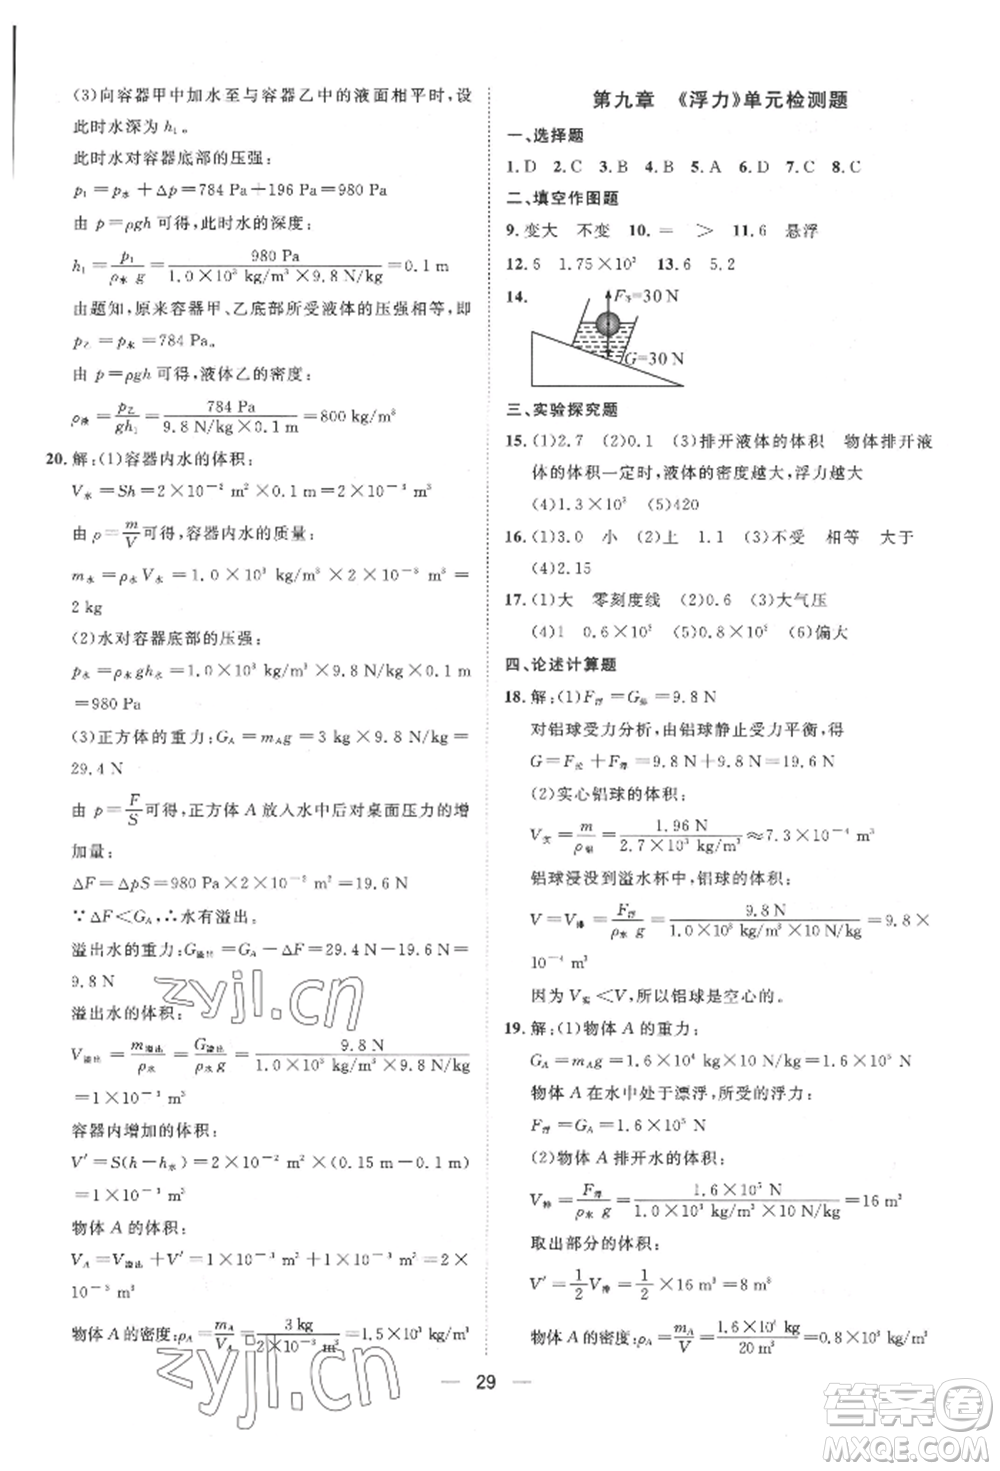 (3)向容器甲中加水至与容器乙中的液面相平时,设
此时水深为 h₁。
此时水对容器底部的压强:
p₁=p水+Δp=784 Pa+196 Pa=980 Pa
由 p=ρgh 可得,此时水的深度:
h₁=p₁/(ρ水 g)=980 Pa/(1.0×10³ kg/m³×9.8 N/kg)=0.1 m
由题知,原来容器甲、乙底部所受液体的压强相等,即
p乙=p水=784 Pa。
由 p=ρgh 可得,液体乙的密度:
ρ液=p乙/(gh₁)=784 Pa/(9.8 N/kg×0.1 m)=800 kg/m³
20.解:(1)容器内水的体积:
V水=Sh=2×10⁻² m²×0.1 m=2×10⁻³ m³
由 ρ=m/V可得,容器内水的质量:
m水=ρ水V水=1.0×10³ kg/m³×2×10⁻³ m³=
2 kg
(2)水对容器底部的压强:
p水=ρ水gh水=1.0×10³ kg/m³×9.8 N/kg×0.1 m
=980 Pa
(3)正方体的重力:G_A=m_Ag=3 kg×9.8 N/kg=
29.4 N
由 p=F/S可得,正方体 A 放入水中后对桌面压力的增
加量:
ΔF=ΔpS=980 Pa×2×10⁻² m²=19.6 N
∵ΔF<G_A,∴水有溢出。
溢出水的重力:G溢出=G_A-ΔF=29.4 N-19.6 N=
9.8 N
溢出水的体积:
V溢出=m溢出/ρ水=G溢出/(ρ水 g)=9.8 N/(1.0×10³ kg/m³×9.8 N/kg)
=1×10⁻³ m³
容器内增加的体积:
V′=S(h-h水)=2×10⁻² m²×(0.15 m-0.1 m)=
1×10⁻³ m³
物体 A 的体积:
V_A=V溢出+V′=1×10⁻³ m³+1×10⁻³ m³=2×
10⁻³ m³
物体 A 的密度:ρ_A=m_A/V_A=3 kg/(2×10⁻³ m³)=1.5×10³ kg/m³
第九章 《浮力》单元检测题
一、选择题
1.D 2.C 3.B 4.B 5.A 6.D 7.C 8.C
二、填空作图题
9.变大 不变 10.= > 11.6 悬浮
12.5 1.75×10³ 13.6 5.2
14.
F浮=30 N
G=30 N
三、实验探究题
15.(1)2.7 (2)0.1 (3)排开液体的体积 物体排开液
体的体积一定时,液体的密度越大,浮力越大
(4)1.3×10³ (5)420
16.(1)3.0 小 (2)上 1.1 (3)不受 相等 大于
(4)2.15
17.(1)大 零刻度线 (2)0.6 (3)大气压
(4)1 0.6×10³ (5)0.8×10³ (6)偏大
四、论述计算题
18.解:(1)F浮=G排=9.8 N
对铝球受力分析,由铝球静止受力平衡,得
G=F拉+F浮=9.8 N+9.8 N=19.6 N
(2)实心铝球的体积:
V实=m/ρ铝=1.96 N/(2.7×10³ kg/m³)≈7.3×10⁻⁴ m³
铝球浸没到溢水杯中,铝球的体积:
V=V排=F浮/(ρ水 g)=9.8 N/(1.0×10³ kg/m³×10 N/kg)=9.8×
10⁻⁴ m³
因为 V实<V,所以铝球是空心的。
19.解:(1)物体 A 的重力:
G_A=m_Ag=1.6×10⁴ kg×10 N/kg=1.6×10⁵ N
物体 A 在水中处于漂浮,所受的浮力:
F浮=G_A=1.6×10⁵ N
(2)物体 A 排开水的体积:
V排=F浮/(ρ水 g)=1.6×10⁵ N/(1.0×10³ kg/m³×10 N/kg)=16 m³
取出部分的体积:
V′=1/2 V排=1/2×16 m³=8 m³
物体 A 的密度:ρ_A=m_A/V=1.6×10⁴ kg/20 m³=0.8×10³ kg/m³
29
zyjl.cn
zyjl.cn
答案圈
MXQE.COM